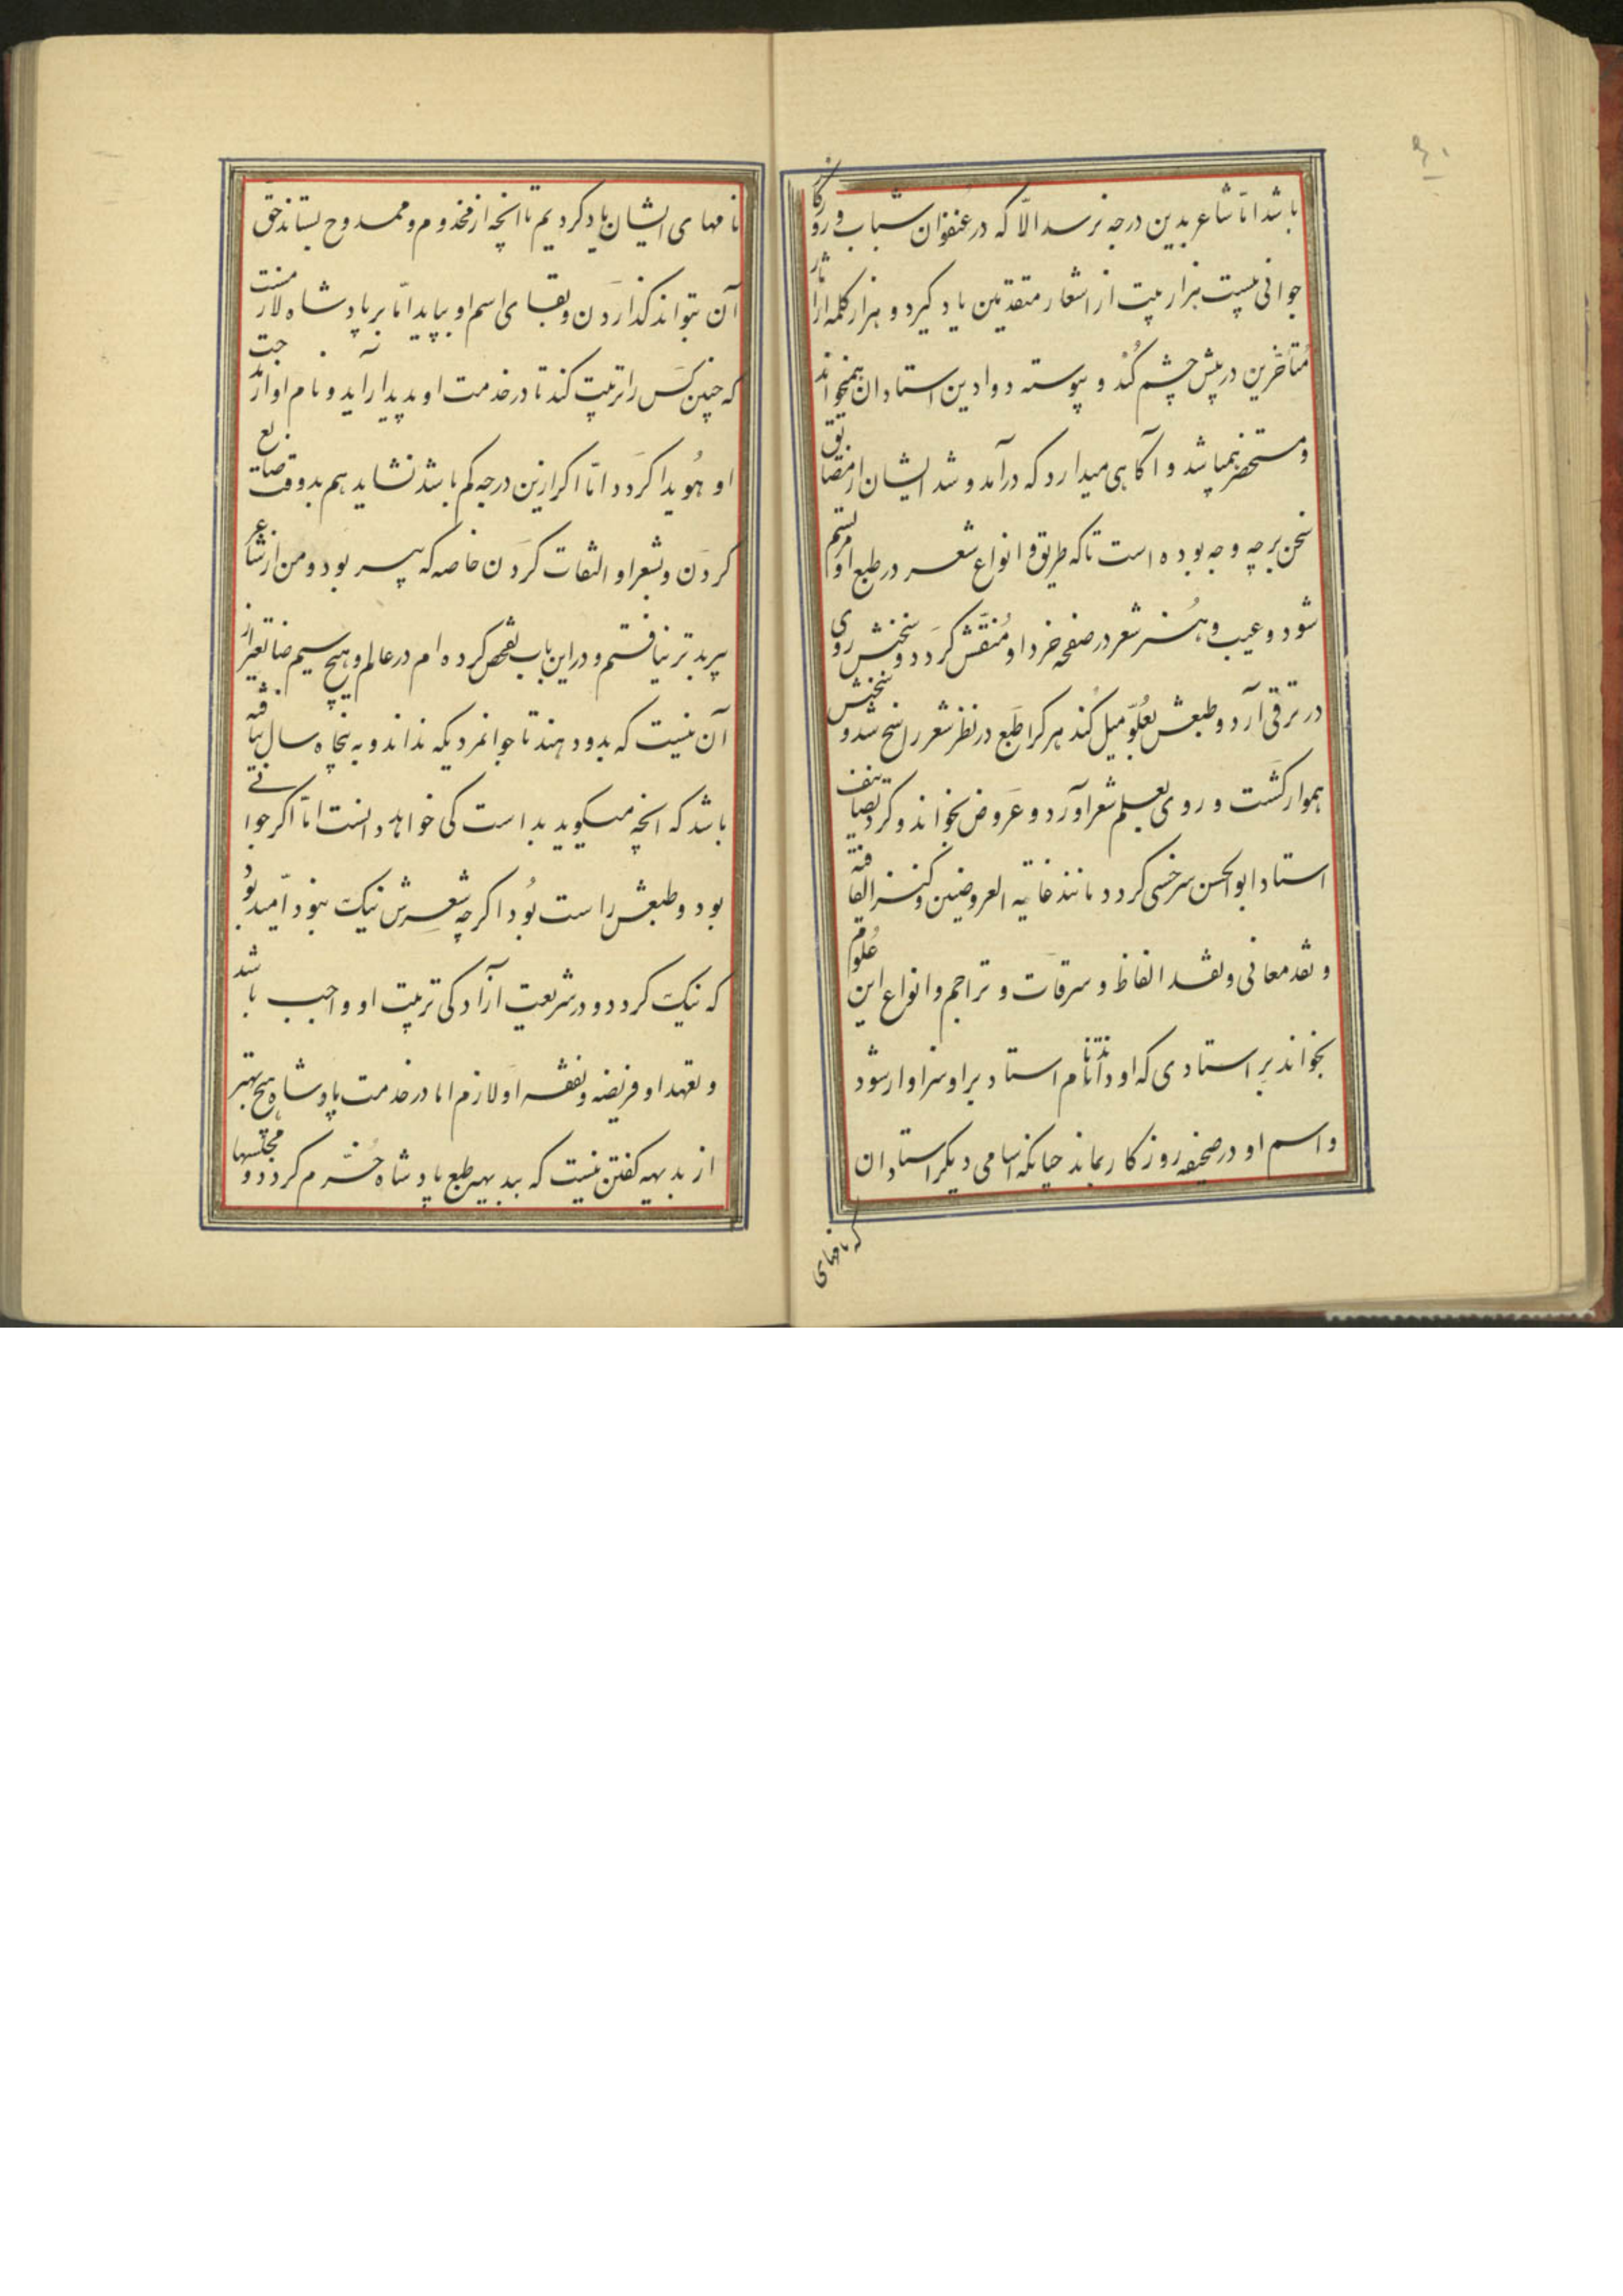 باشد اما شاعر بدین درجه نرسد الّا که در عنفوان شباب و روزکار
جوانی بیست هزار بیت از اشعار متقدمین یاد کیرد و هزار کلمه از آثار
متأخرین در پیش چشم کُند و پیوسته دواوین استادان همیخواند
و مستحضر همیباشد و آکاهی میدارد که درآمد و شد ایشان از مضایق
سخن بر چه وجه بوده است تا که طریق و انواع شعر در طبع او مرتسم
شود و عیب و هنر شعر در صفحه خرد او مُنقّش کَردد و سخنش روی
در ترقی آرد و طبعش بعُلوّ میل کُند هر کرا طبع در نظر شعر راسخ شد و سخنش
هموار کَشت و روی بعلم شعر آورد و عَروض بخواند و کرد تصانیف
استاد ابوالحسن سرخسی کردد مانند غایة العروضیین و کنز القافیه
و نقد معانی و نقد الفاظ و سرقات و تراجم و انواع این عُلوم
بخواند بر استادی که او داند تا نام استاد بر او سزاوار شود
و اسم او در صحیفه روزکار بماند چنانکه اسامی دیکر استادان
که نامهای
نامهای ایشان یاد کردیم تا آنچه از مخدوم و ممدوح بستاند حق
آن بتواند کذاردن و بقای اسم او بپاید امّا بر پادشاه لازمست
که چنین کَس را تربیت کند تا در خدمت او پدیدار آید و نام او از مدحت
او هُویدا کَردد امّا اکر ازین درجه کم باشد نشاید هم بدو وقت ضایع
کردَن و بشعر او التفات کردن خاصه که پیر بود و من از شاعر
پیر بدتر نیافتم و در این باب تفحص کرده‌ام در عالم و هیچ سیم ضایعتر از
آن نیست که بدو دهند ناجوانمردیکه نداند و به پنجاه سال نیافته
باشد که آنچه میکوید بد است کی خواهد دانست امّا اکر جوانی
بود و طبعش راست بُود اکر چه شعرش نیک نبود امّید بُود
که نیک کردد و در شریعت آزادکی تربیت او واجب باشد
و تعهد او فریضه و تفقد او لازم اما در خدمت پادشاه هیچ بهتر
از بدیهه کفتن نیست که ببدیهه طبع پادشاه خُرّم کردد و مجلسها